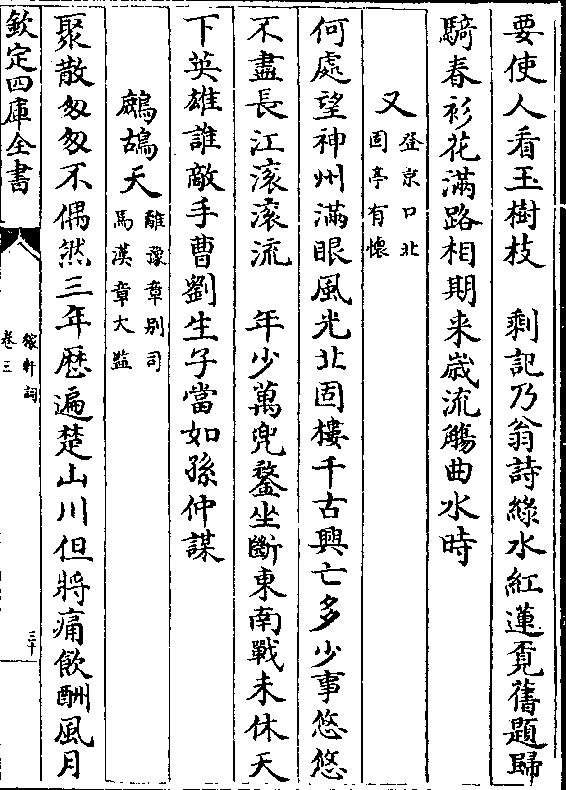 要使人看玉樹枝　剩記乃翁詩綠水紅蓮覔舊題歸
騎春衫花滿路相期来嵗流觴曲水時
又登京口北
固亭有懷
何處望神州滿眼風光北固樓千古興亡多少事悠悠
不盡長江滚滚流　年少萬兜鍪坐斷東南戰未休天
下英雄誰敵手曹劉生子當如孫仲謀
鷓鴣天離豫章别司
馬漢章大監
聚散匆匆不偶然三年歴遍楚山川但將痛飲酬風月
欽定四庫全書
稼軒詞
卷三
三十